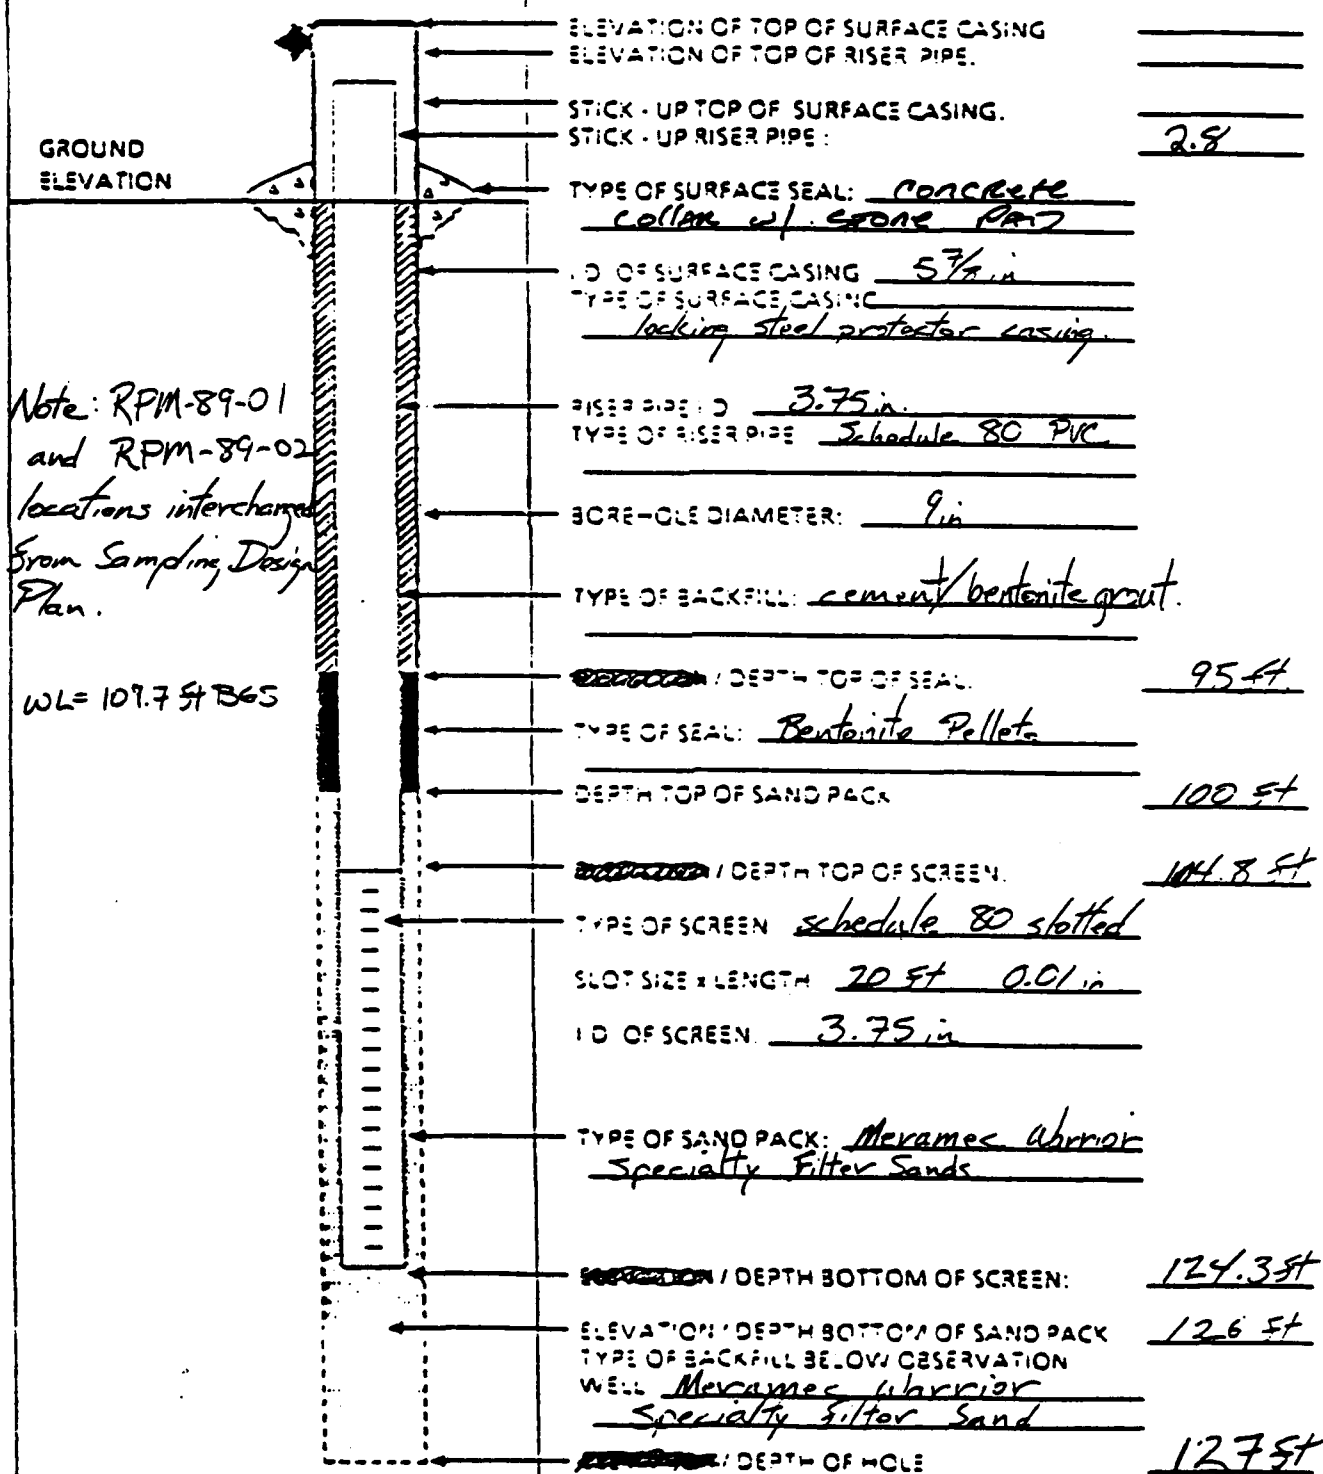 ELEVATION OF TOP OF SURFACE CASING
ELEVATION OF TOP OF RISER PIPE.
STICK - UP TOP OF SURFACE CASING.
STICK - UP RISER PIPE : 2.8
GROUND
ELEVATION
TYPE OF SURFACE SEAL: Concrete
Collar w/ stone Pad
I.D. OF SURFACE CASING 5 7/8 in
TYPE OF SURFACE CASING
locking steel protector casing.
Note: RPM-89-01
and RPM-89-02
locations interchanged
from Sampling Design
Plan.
RISER PIPE I.D. 3.75 in.
TYPE OF RISER PIPE Schedule 80 PVC
BOREHOLE DIAMETER: 9 in
TYPE OF BACKFILL: cement/bentonite grout.
WL= 109.7 ft BGS
/ DEPTH TOP OF SEAL. 95 ft.
TYPE OF SEAL: Bentonite Pellets
DEPTH TOP OF SAND PACK 100 ft
/ DEPTH TOP OF SCREEN. 104.8 ft
TYPE OF SCREEN schedule 80 slotted
SLOT SIZE x LENGTH 20 ft 0.01 in
I D OF SCREEN. 3.75 in
TYPE OF SAND PACK: Meramec Warrior
Specialty Filter Sands
/ DEPTH BOTTOM OF SCREEN: 124.3 ft
ELEVATION / DEPTH BOTTOM OF SAND PACK 126 ft
TYPE OF BACKFILL BELOW OBSERVATION
WELL Meramec Warrior
Specialty Filter Sand
/ DEPTH OF HOLE 127 ft